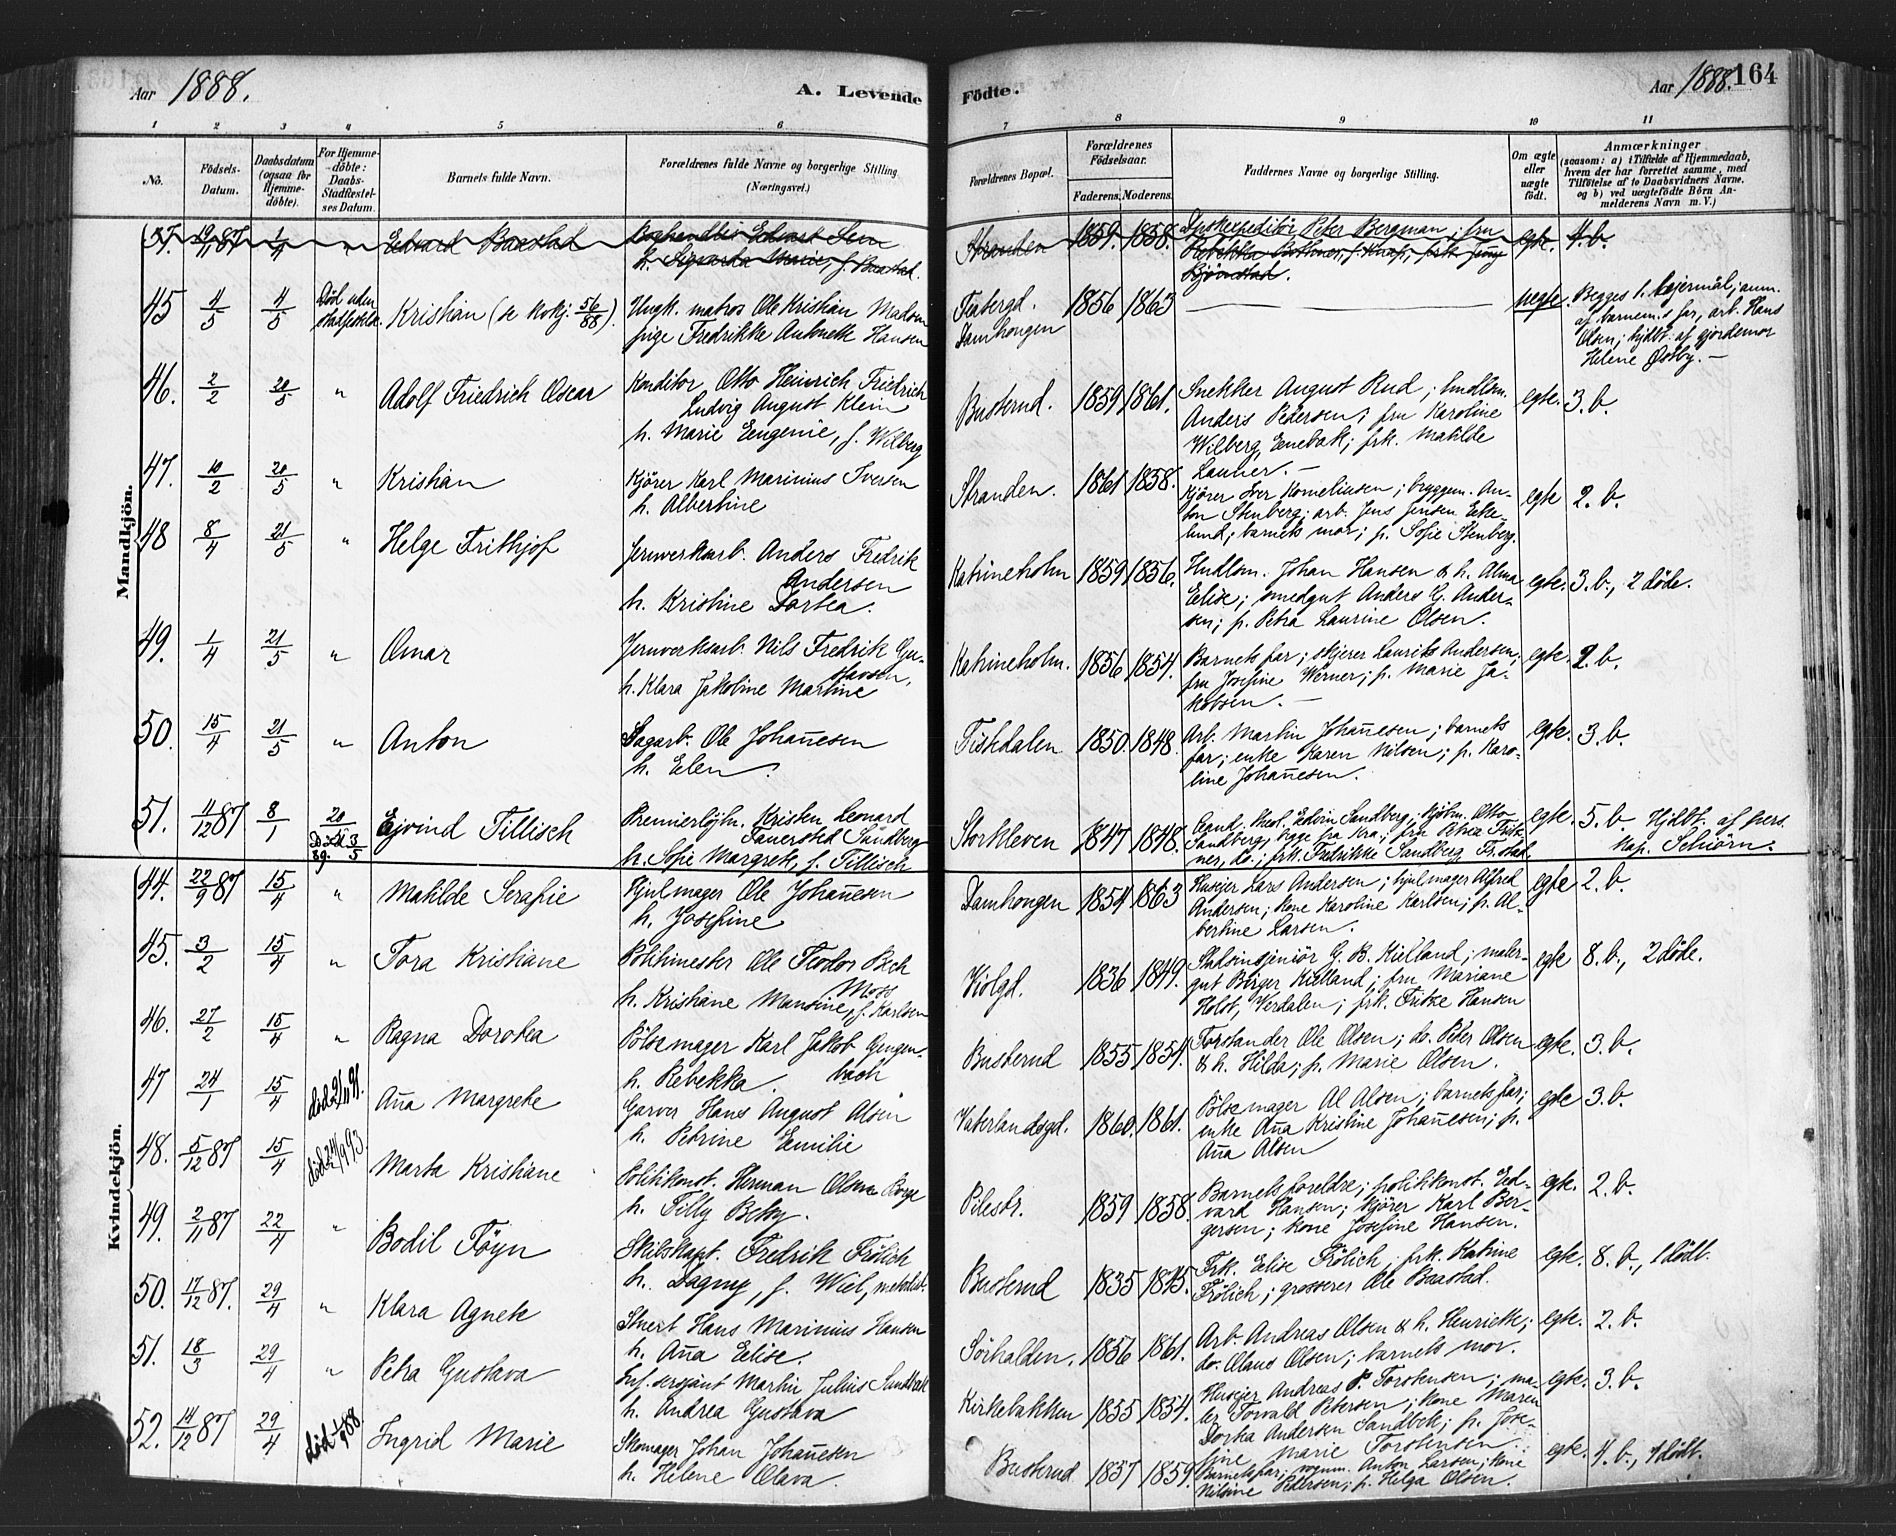 Aar 1888. A. Levende Födte. Aar 1888. 164
1 2 3 4 5 6 7 8 9 10 11
No. Födsels-Datum. Daabsdatum (ogsaa for Hjemme-döbte). For Hjemme-döbte: Daabs-Stadfæstelses Datum. Barnets fulde Navn. Forældrenes fulde Navne og borgerlige Stilling (Næringsvei.) Forældrenes Bopæl. Forældrenes Födselsaar. Faderens. Moderens. Faddernes Navne og borgerlige Stilling. Om ægte eller uægte födt. Anmærkninger (saasom: a) i Tilfælde af Hjemmedaab, hvem der har forrettet samme, med Tilföielse af to Daabsvidners Navne, og b) ved uægtefödte Börn Anmelderens Navn m. V.)
Mandkjön.
Edvard Baastad
h. Sigvarda Marie, f. Baastad
Stranden 1859. 1858. Peter Bergman; fru
Björnstad.
egte. 4. b.
45 4/5 4/5 Död uden stadfestelse Kristian (se kvkj. 56/88). Ungk. matros Ole Kristian Madsen
pige Fredrikke Antonette Hansen
Damhaugen 1856 1863 uegte. Begges 1. leiermål; anm.
af barnem.s far, arb. Hans
Olsen; hjdbt. af gjordemor
Helene Østby. —
46. 2/2 20/5 " Adolf Friedrich Oscar Konditor Otto Heinrich Friedrich
Ludvig August Klein
h. Marie Eugenie, f. Wilberg
Busterud. 1859 1861. Snekker August Rud; hmdlsm.
Anders Pedersen; fru Karoline
Wilberg, Enebak; frk. Matilde
Launer. —
egte. 3. b.
47. 10/2 20/5 " Kristian Kjörer Karl Marinius Iversen
h. Albertine
Stranden. 1861 1858. Kjörer Iver Korneliusen; bryggem. An-
ton Stenberg; arb. Jens Jensen Eke-
lund; barnets mor; p. Sofie Stenberg.
egte 2. b.
48 8/4 21/5 " Helge Frithjof Jernverksarb. Anders Fredrik
Andersen
h. Kristine Dortea.
Katrineholm 1859 1856. Hndlsm. Johan Hansen & h. Alma
Elise; smedgut Anders G. Ander-
sen; p. Petra Laurine Olsen.
egte. 3. b., 2 döde.
49. 1/4 21/5 " Omar Jernverksarb. Nils Fredrik Gu-
stavsen,
h. Klara Jakobine Martine
Katrineholm. 1856 1854. Barnets far; skjerer Laurits Andersen;
fru Josefine Werner; p. Marie Ja-
kobsen. —
egte. 2. b.
50. 15/4 21/5 " Anton Sagarb. Ole Johan̄esen
h. Elen.
Tistedalen 1850. 1848. Arb. Martin Johan̄esen; barnets
far; enke Karen Nilsen; p. Karo-
line Johan̄esen.
egte. 3. b.
51. 11/12 87 8/1 20/5 Död 3/5 89. Ejvind Tillisch Premierlöjtn. Kristen Leonard
Fauersted Sandberg
h. Sofie Margrete, f. Tillisch
Storkleven 1847 1848. Cand. theol. Edvin Sandberg; kjöbm. Otto
Sandberg, begge fra Kra.;
frk. Fredrikke Sandberg Fr.stad
egte. 5. b. Hjdbt. af pers.
kap. Schiörn.
Kvindekjön.
44. 22/9 87 15/4 " Matilde Serafie Hjulmager Ole Johan̄esen
h. Josefine
Damhaugen 1854 1863 Husejer Lars Andersen; hjulmager Alfred
Andersen; kone Karoline Karlsen; p. Al-
bertine Larsen.
egte 2. b.
45. 3/2 15/4 " Tora Kristiane Politimester Ole Teodor Bech
Moss
h. Kristiane Mansine, f. Karlsen
Violgd. 1836 1849. G. B. Kielland; maler-
gut Birger Kielland; fru Mariane
Holst, Verdalen; frk. Fritze Hansen
egte 8. b., 2 döde.
46. 27/2 15/4 " Ragna Dorotea Pölsemager Karl Jakob Gengen-
bach
h. Rebekka.
Busterud 1855 1854. Forstander Ole Olsen; do. Peter Olsen
& h. Hilda; p. Marie Olsen.
egte. 3. b.
47 24/1 15/4 An̄a Margrete Garver Hans August Alsen
h. Petrine Emilie
Vaterlandsgd. 1860. 1861. Pölsemager Al Alsen; barnets far;
enke An̄a Kristine Johan̄esen; p.
An̄a Alsen
egte 3. b.
48. 5/12 87 15/4 död 24/9 93. Marta Kristiane Politikonst. Herman Olsen Borge
h. Tilly Betsy.
Pilestr. 1859 1858. Barnets foreldre; politikonst. Ed-
vard Hansen; kjörer Karl Ber-
gersen; kone Josefine Hansen.
egte. 2. b.
49. 2/11 87 22/4 " Bodil Föyn Skibskapt. Fredrik Frölich
h. Dagny, f. Wiel, metodist.
Busterud 1835 1845. Frk. Elise Frölich, frk. Katrine
Frölich; grosserer Ole Baastad.
egte. 8. b., 1 dödf.
50. 17/12 87. 29/4 " Klara Agnete Stuert Hans Marinius Hansen
h. An̄a Elise.
Sörhalden. 1856 1861. Arb. Andreas Olsen & h. Henriette;
do. Olaus Olsen; barnets mor.
egte. 2. b.
51. 18/3 29/4 " Petra Gustava Inf. sersjant Martin Julius Sandbæk
h. Andrea Gustava
Kirkebakken 1855 1854. Husejer Andreas P. Torstensen; ma-
ler Torvald Petersen; kone Maren
Dortea Andersen Sandbek; p. Jose-
fine Marie Torstensen
egte. 3. b.
52. 14/12 87 29/4 Ingrid Marie Skomager Johan Johan̄esen
h. Helene Olava
Busterud 1857 1859. Barnets far; Anton Larsen; kone
Nilsine Pedersen; p. Helga Olsen.
egte. 4. b., 1 dödf.